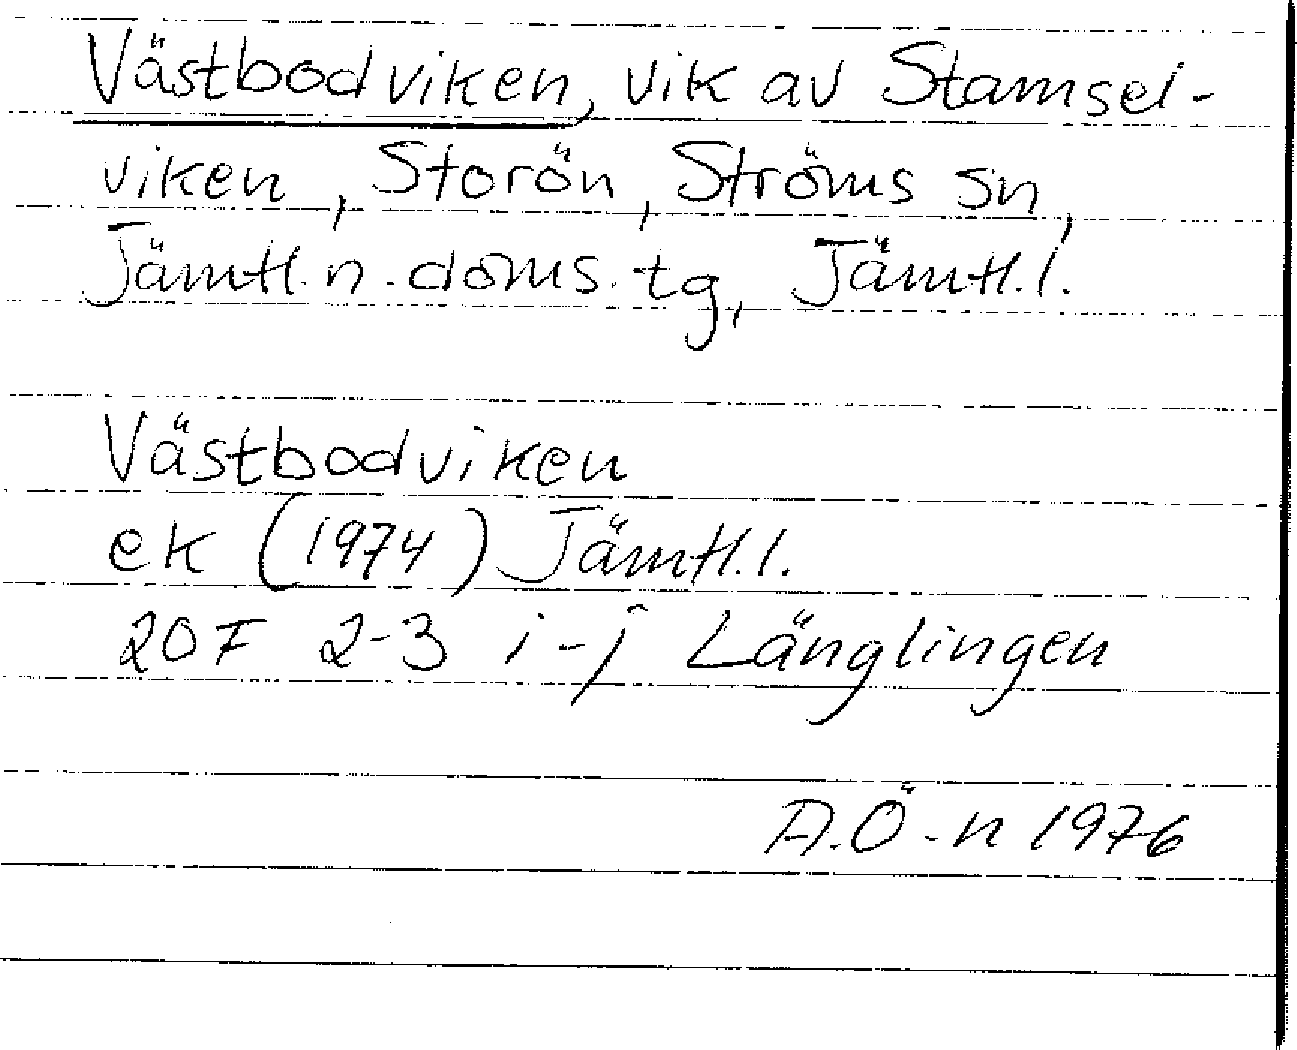 Västbodviken, vik av Stamsel-
viken, Storön, Ströms sn,
Jämtl. n. doms. tg, Jämtl. l.
Västbodviken
ek (1974) Jämtl. l.
20F 2-3 i-j Länglingen
A.Ö-n 1976